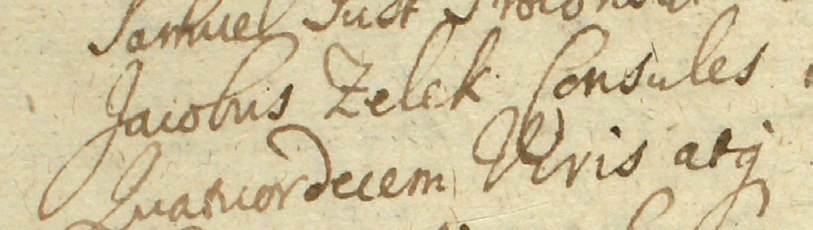 Samuel Just
Jacobus Zelek Consules
Quatuordecem Viris atq